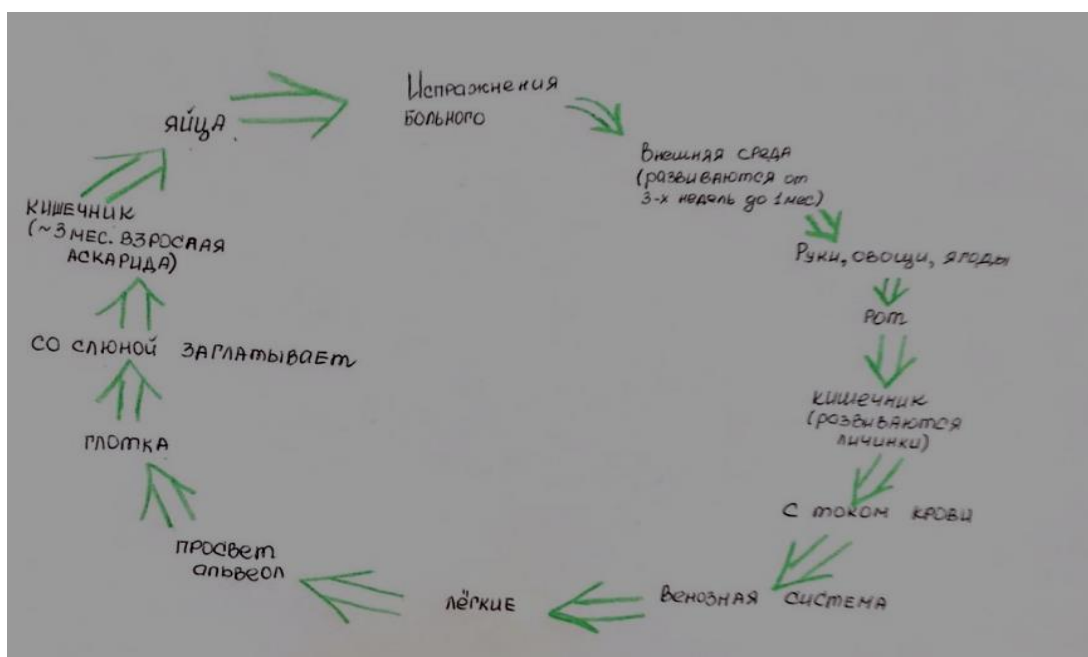 яйца
Испражнения
больного
Внешняя среда
(развиваются от
3-х недель до 1 мес)
Руки, овощи, ягоды
рот
кишечник
(развиваются
личинки)
с током крови
венозная система
лёгкие
просвет
альвеол
глотка
со слюной заглатывает
кишечник
(~3 мес. взрослая
аскарида)